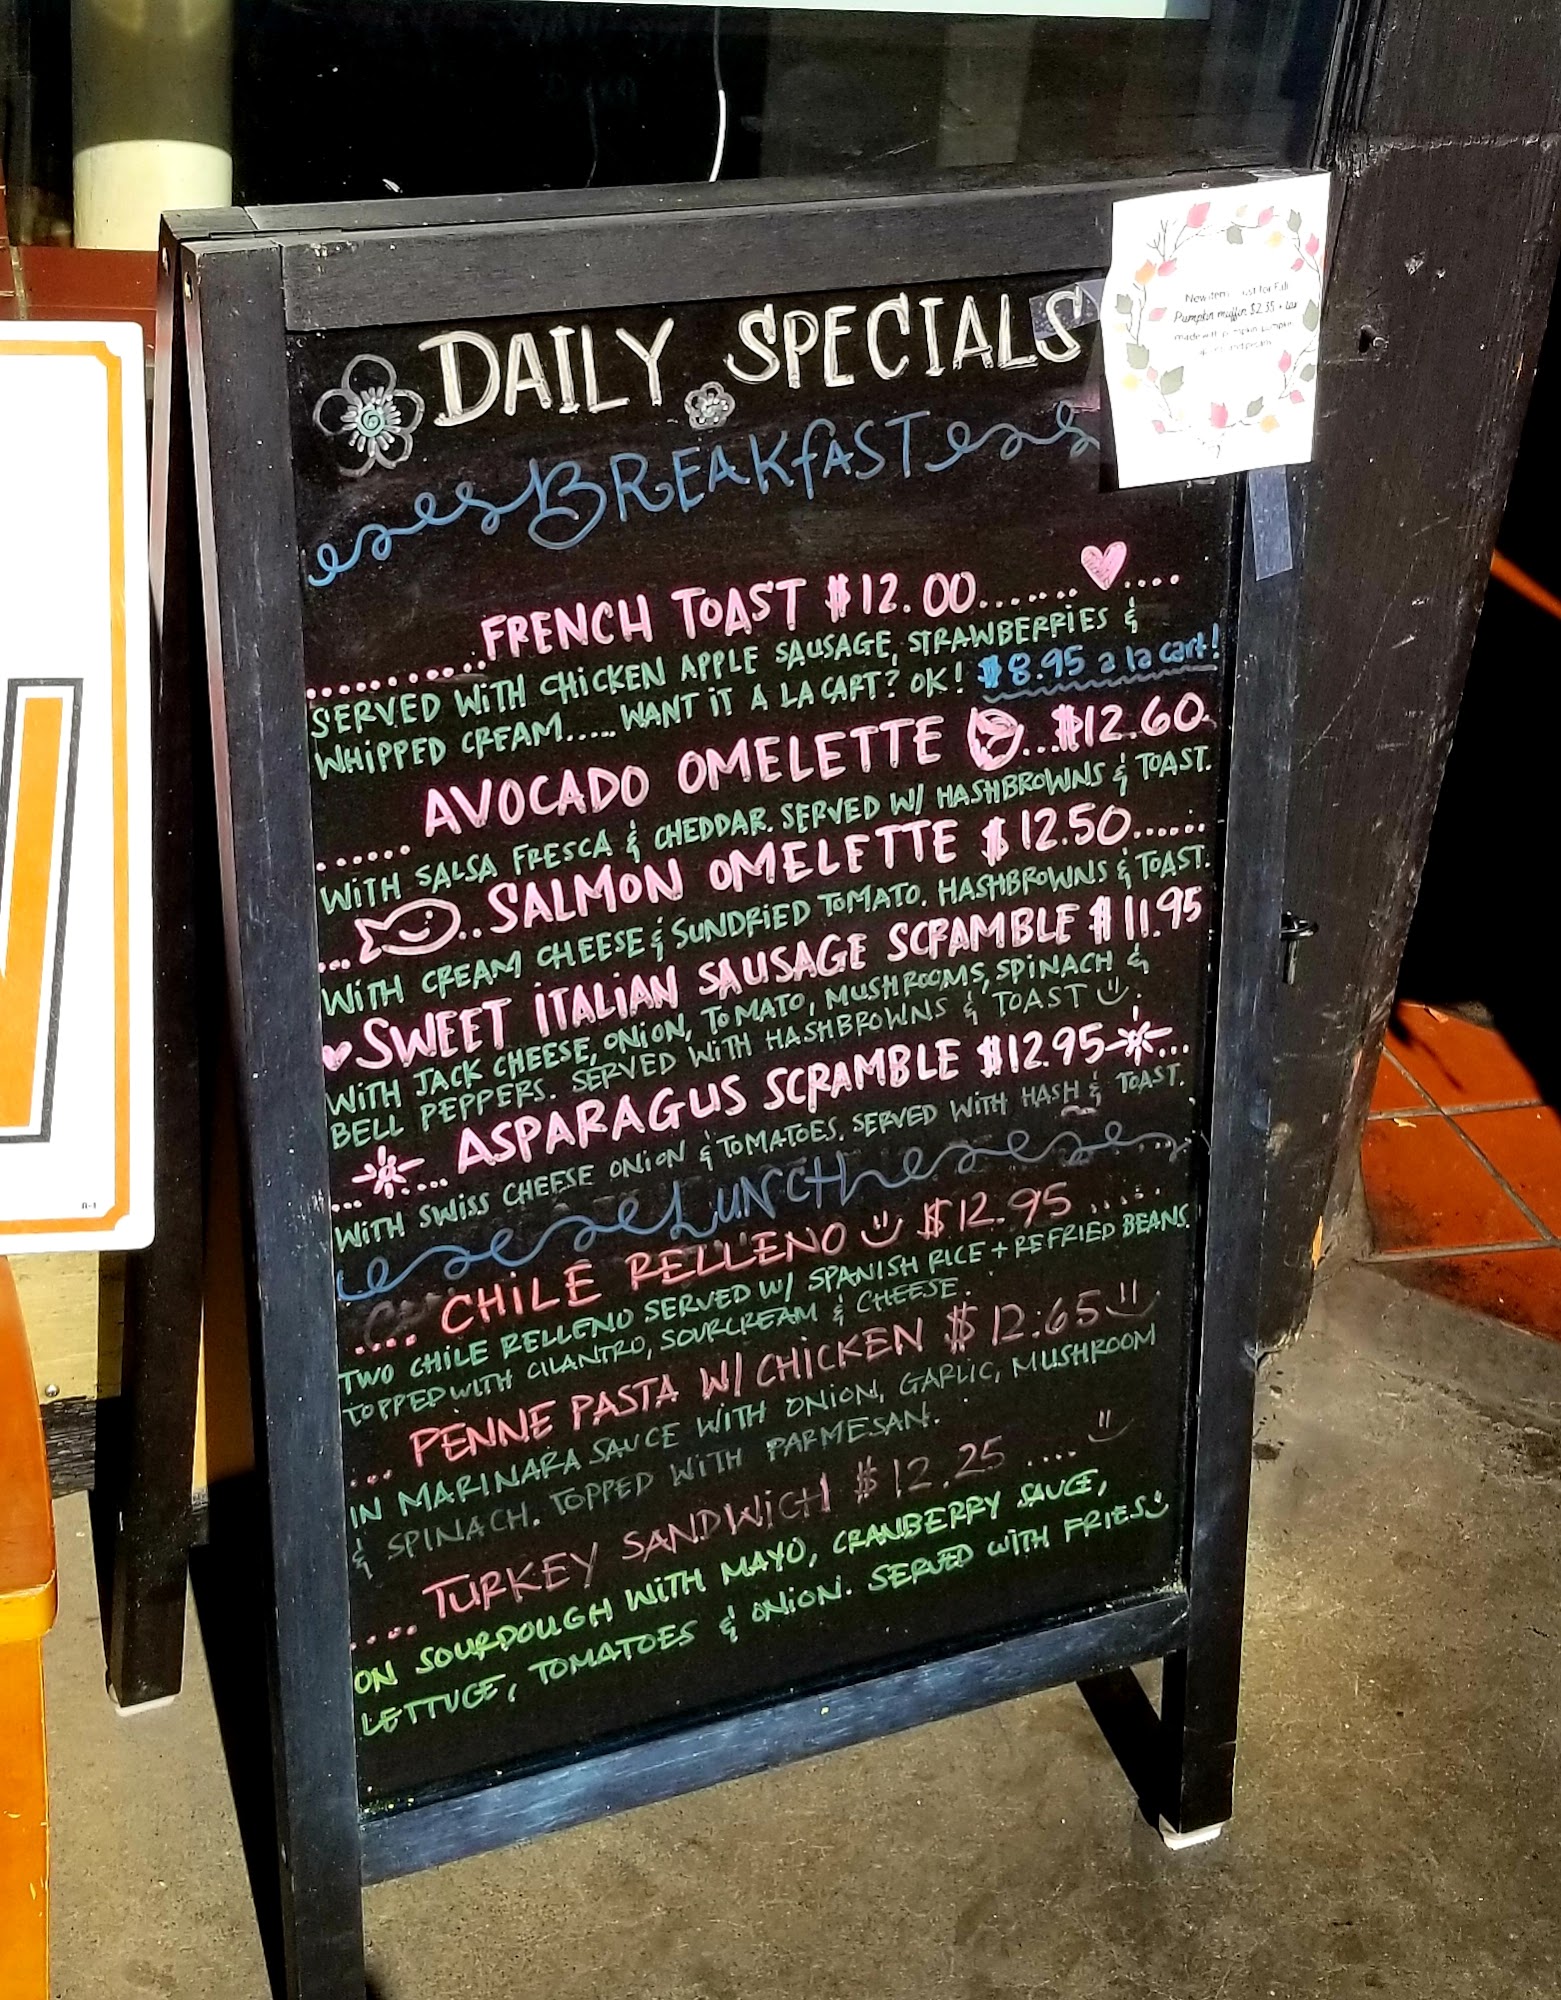 DAILY SPECIALS
BREAKFAST
New item just for Fall
Pumpkin muffin $2.35 + tax
made with pumpkin, pumpkin
FRENCH TOAST $12.00
SERVED WITH CHICKEN APPLE SAUSAGE, STRAWBERRIES &
WHIPPED CREAM..... WANT IT A LA CART? OK! $8.95 a la cart!
AVOCADO OMELETTE ...$12.60
WITH SALSA FRESCA & CHEDDAR. SERVED W/ HASHBROWNS & TOAST.
SALMON OMELETTE $12.50
WITH CREAM CHEESE & SUNDRIED TOMATO. HASHBROWNS & TOAST.
SWEET ITALIAN SAUSAGE SCRAMBLE $11.95
WITH JACK CHEESE, ONION, TOMATO, MUSHROOMS, SPINACH &
BELL PEPPERS. SERVED WITH HASHBROWNS & TOAST
ASPARAGUS SCRAMBLE $12.95
WITH SWISS CHEESE ONION & TOMATOES. SERVED WITH HASH & TOAST.
LUNCH
CHILE RELLENO $12.95
TWO CHILE RELLENO SERVED W/ SPANISH RICE + REFRIED BEANS.
TOPPED WITH CILANTRO, SOURCREAM & CHEESE.
PENNE PASTA W/ CHICKEN $12.65
IN MARINARA SAUCE WITH ONION, GARLIC, MUSHROOM
& SPINACH. TOPPED WITH PARMESAN.
TURKEY SANDWICH $12.25
ON SOURDOUGH WITH MAYO, CRANBERRY SAUCE,
LETTUCE, TOMATOES & ONION. SERVED WITH FRIES
A-1